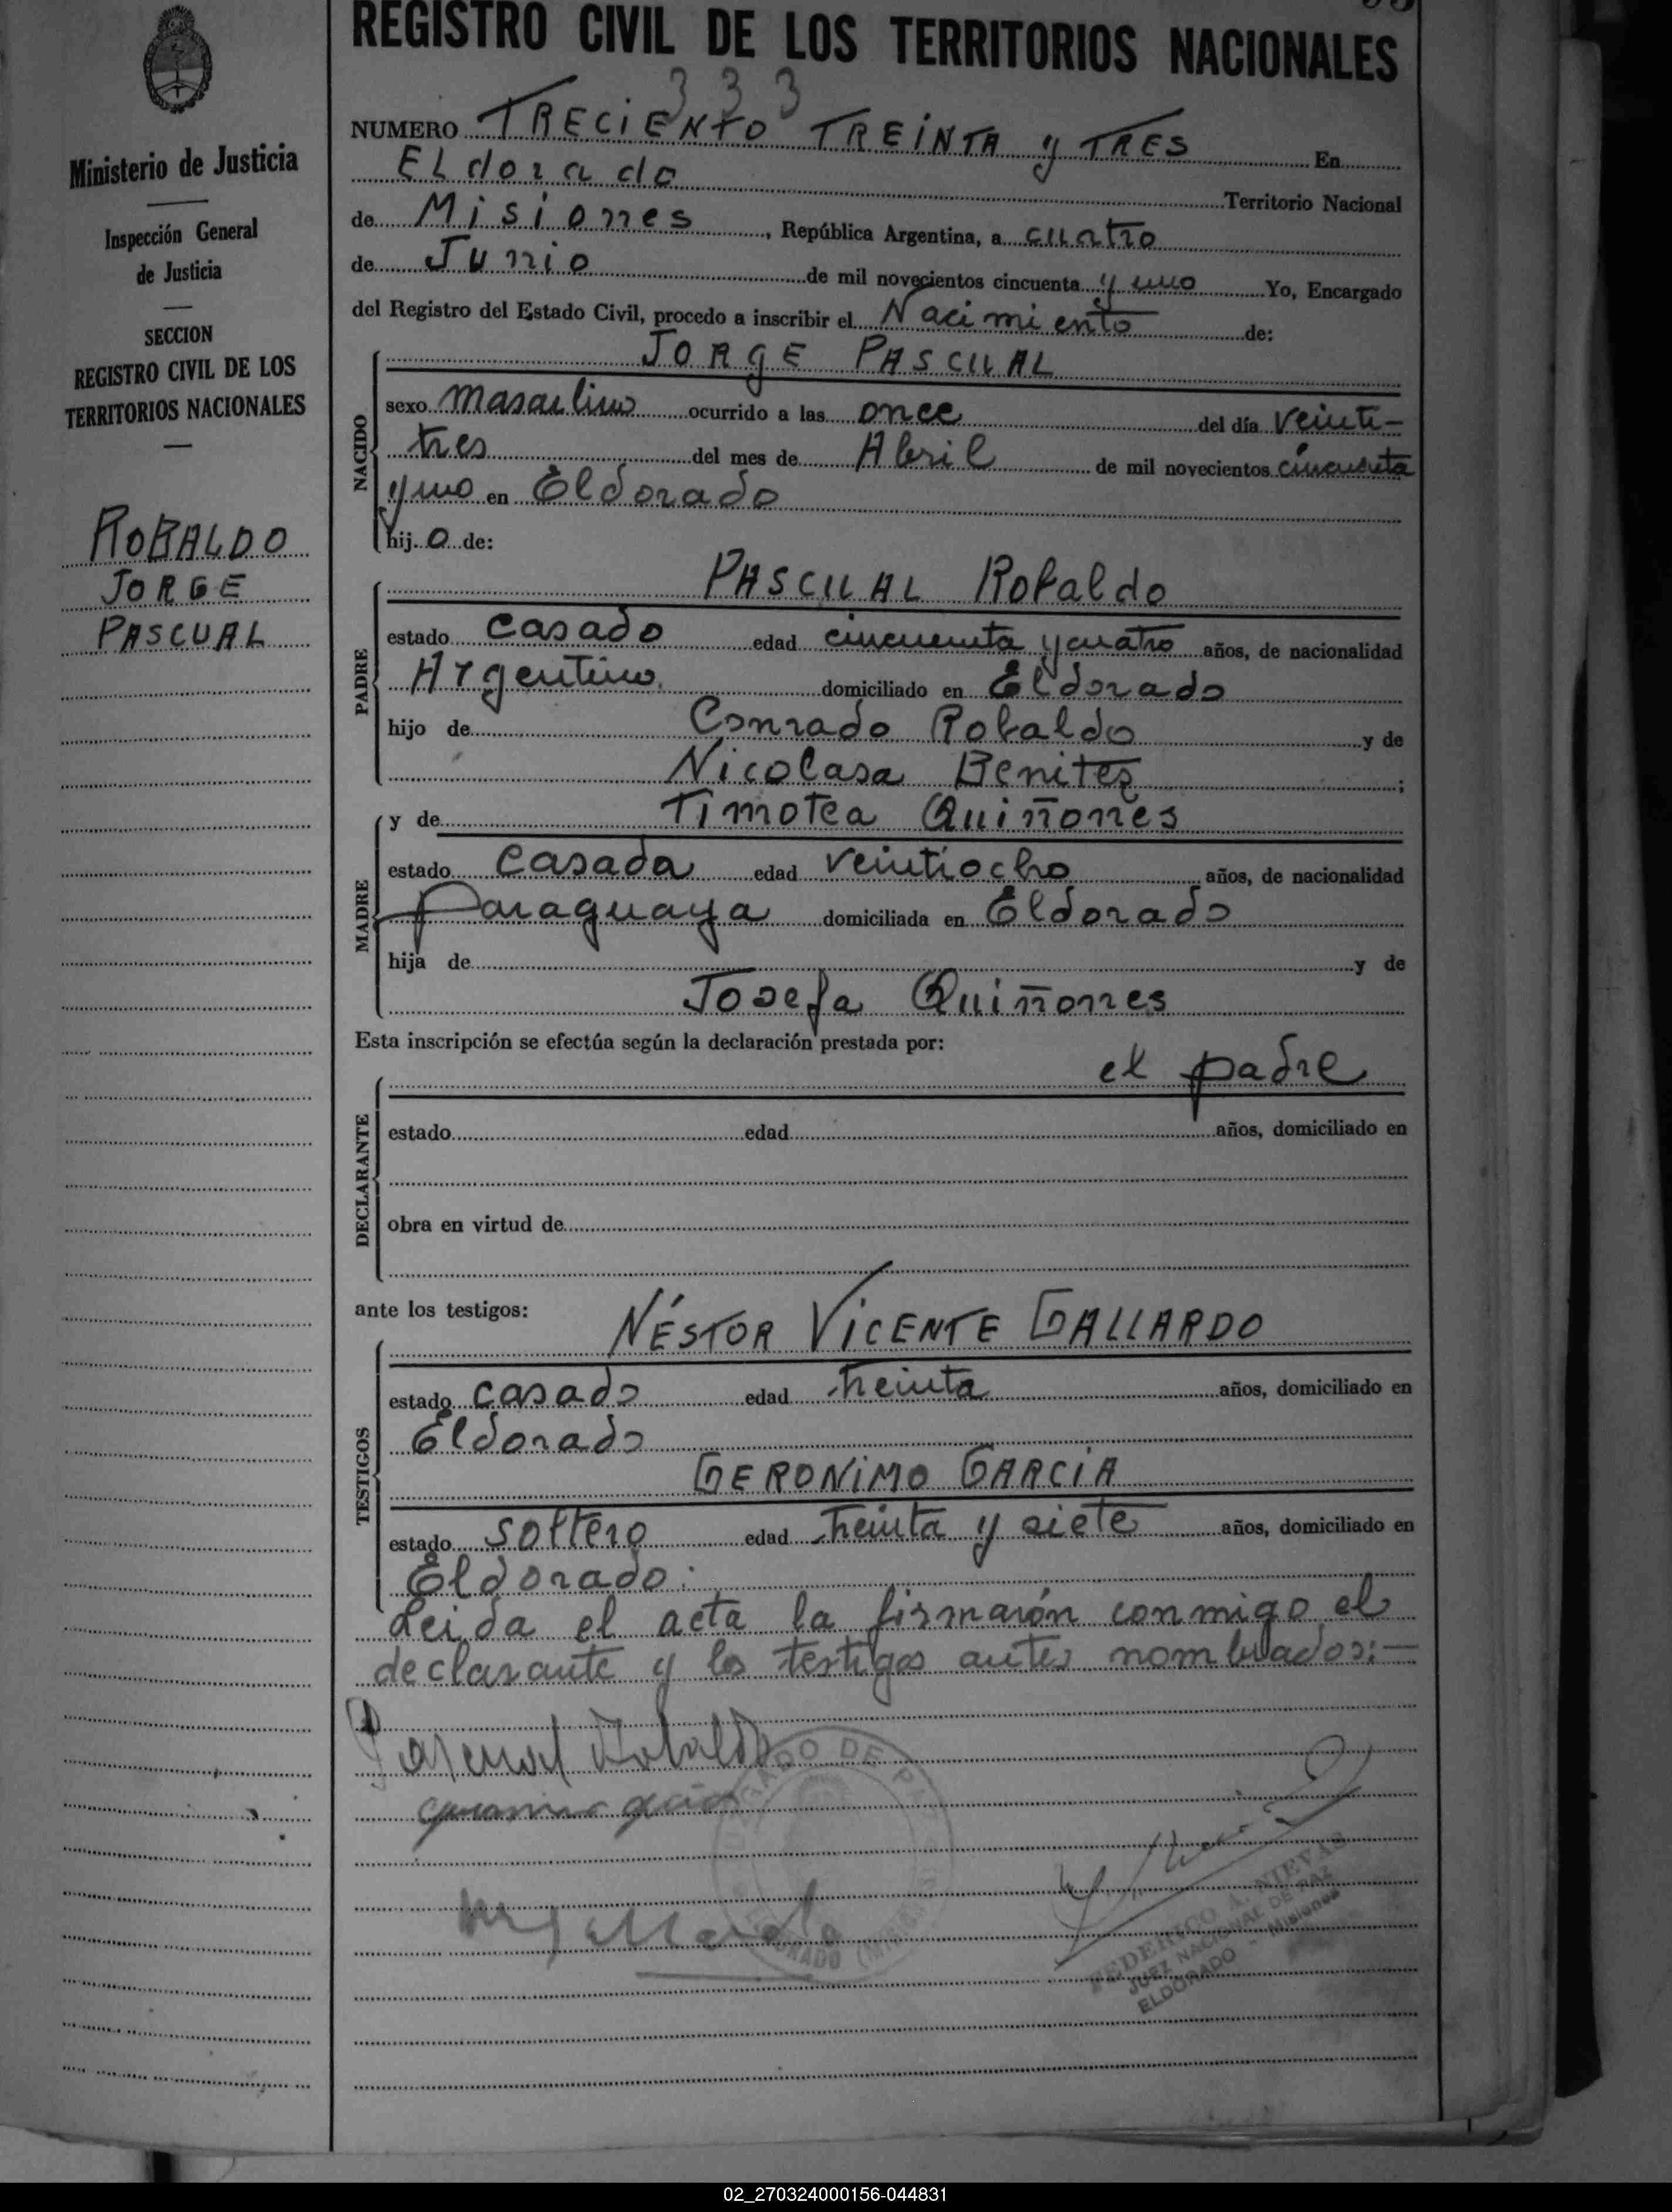 REGISTRO CIVIL DE LOS TERRITORIOS NACIONALES
Ministerio de Justicia
Inspección General
de Justicia
SECCION
REGISTRO CIVIL DE LOS
TERRITORIOS NACIONALES
ROBALDO
JORGE
PASCUAL
333
NUMERO TRECIENTO TREINTA y TRES En
ELdorado Territorio Nacional
de Misiones, República Argentina, a cuatro
de Junio de mil novecientos cincuenta y uno Yo, Encargado
del Registro del Estado Civil, procedo a inscribir el Nacimiento de:
NACIDO
JORGE PASCUAL
sexo masculino ocurrido a las once del día veinti-
tres del mes de Abril de mil novecientos cincuenta
y uno en Eldorado
hijo de:
PADRE
PASCUAL Robaldo
estado casado edad cincuenta y cuatro años, de nacionalidad
Argentino domiciliado en Eldorado
hijo de Conrado Robaldo y de
Nicolasa Benitez;
MADRE
y de Timotea Quiñones
estado casada edad veintiocho años, de nacionalidad
paraguaya domiciliada en Eldorado
hija de y de
Josefa Quiñones
Esta inscripción se efectúa según la declaración prestada por:
DECLARANTE
el padre
estado edad años, domiciliado en
obra en virtud de
ante los testigos:
TESTIGOS
NÉSTOR VICENTE GALLARDO
estado casado edad treinta años, domiciliado en
Eldorado
GERONIMO GARCIA
estado soltero edad treinta y siete años, domiciliado en
Eldorado.
Leida el acta la firmarón conmigo el
declarante y los testigos antes nombrados:—
Pascual Robaldo
JUZGADO DE PAZ
ELDORADO (MISIONES)
FEDERICO A. NIEVAS
JUEZ NACIONAL DE PAZ
ELDORADO - Misiones
02_270324000156-044831